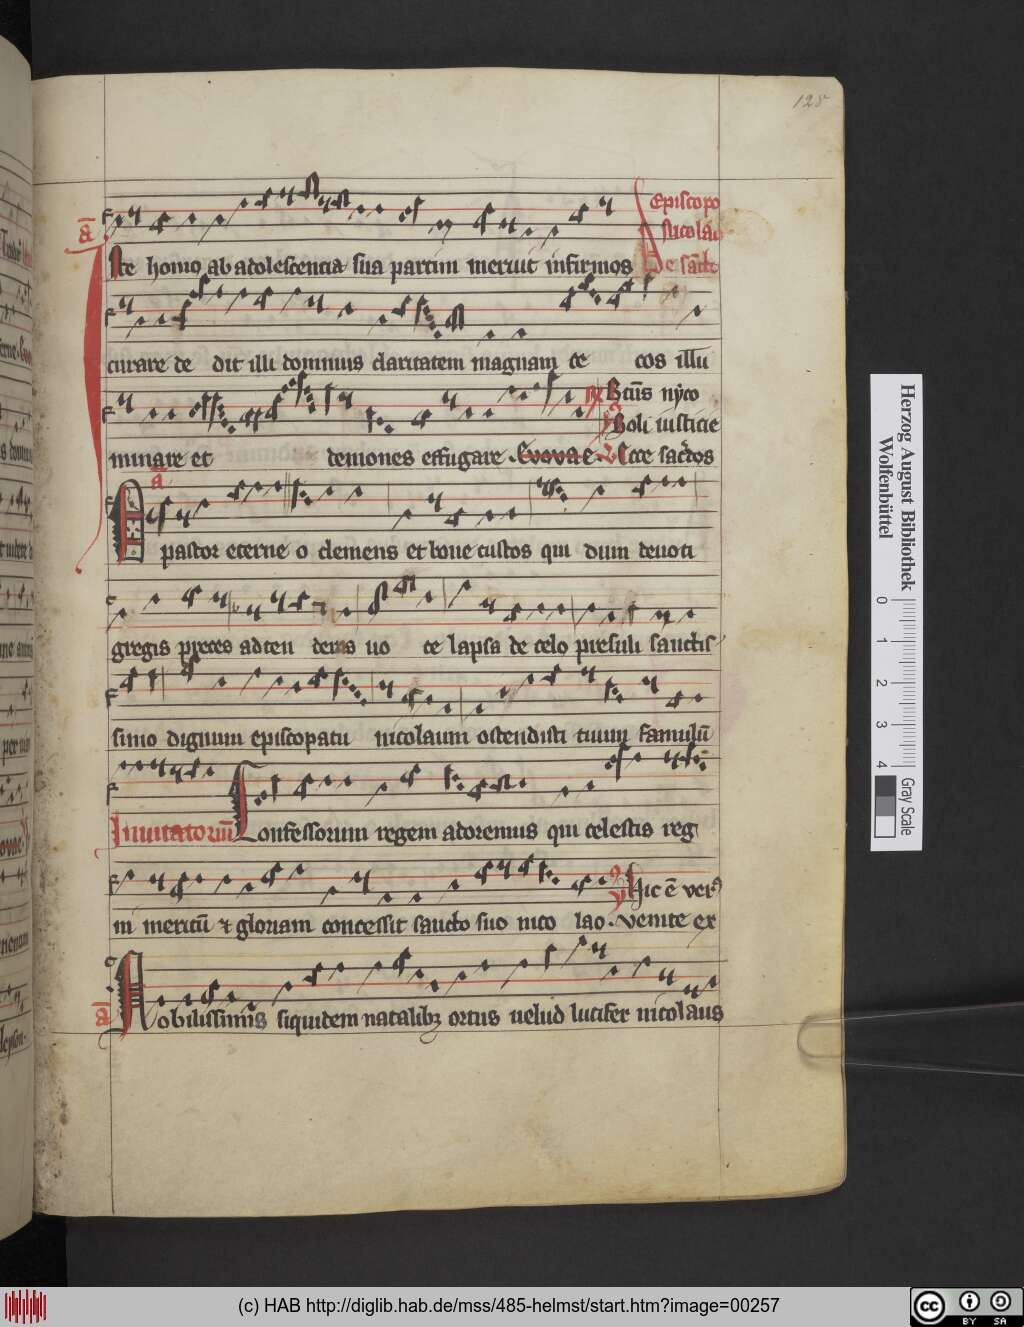 128
Episcopo
Nicolao
De sancto
Iste homo ab adolescencia sua partim meruit infirmos
curare de dit illi dominus claritatem magnam ce cos illu
Btus nyco
Soli iusticie
minare et demones effugare . Evovae . Ecce sacdos
O pastor eterne o clemens et bone custos qui dum deuoti
gregis preces adten deres uo ce lapsa de celo presuli sanctis
simo dignum episcopatu nicolaum ostendisti tuum famulū
Inuitatoriū Confessorum regem adoremus qui celestis reg
Hic ē ver
ni meritū & gloriam concessit sancto suo nico lao . venite ex
Nobilissimis siquidem natalibꝫ ortus uelud lucifer nicolaus
Herzog August Bibliothek
Wolfenbüttel
0 1 2 3 4
Gray Scale
(c) HAB http://diglib.hab.de/mss/485-helmst/start.htm?image=00257
cc BY SA